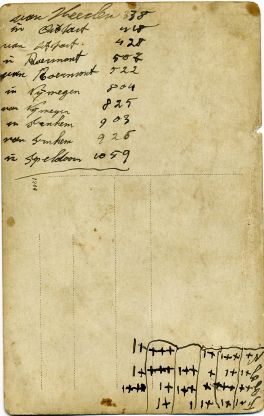 van Heerlen 338
in Sittart 418
van Sittart 428
in Roermont 507
van Roermont 522
in Nijmegen 804
van Nijmegen 825
in Arnhem 903
van Arnhem 926
in Apeldoorn 1059